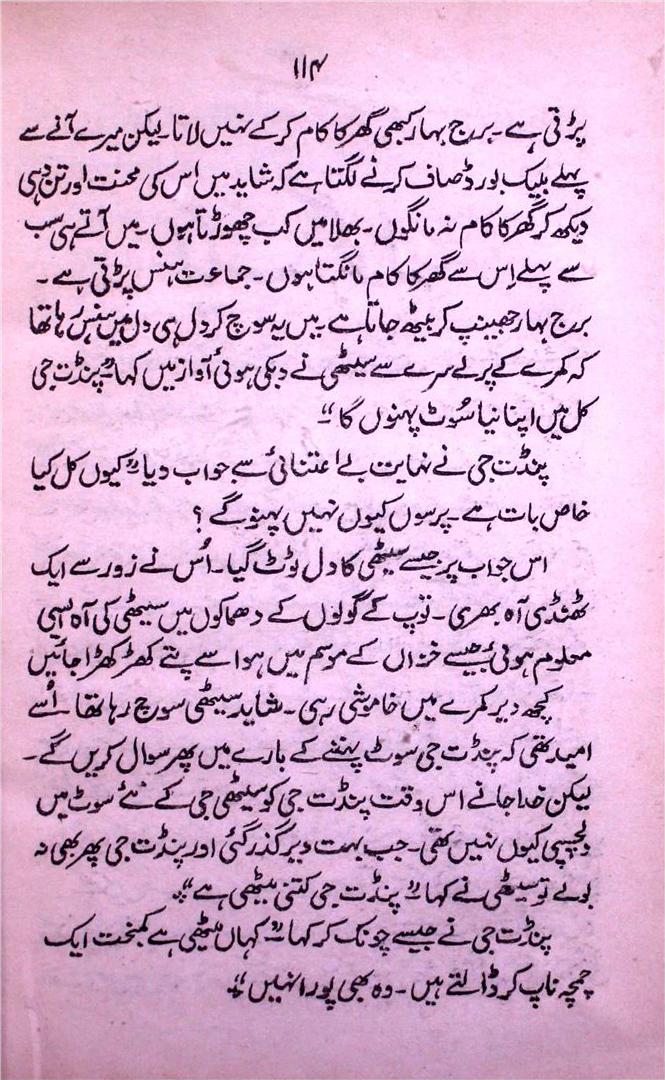 ۱۱۴
پڑتی ہے۔ برج بہار کبھی گھر کا کام کر کے نہیں لاتا۔ لیکن میرے آنے سے
پہلے بلیک بورڈ صاف کرنے لگتا ہے کہ شاید میں اُس کی محنت اور تن دہی
دیکھ کر گھر کا کام نہ مانگوں۔ بھلا میں کب چھوڑتا ہوں۔ میں آتے ہی سب
سے پہلے اِس سے گھر کا کام مانگتا ہوں۔ جماعت ہنس پڑتی ہے۔
برج بہار جھینپ کر بیٹھ جاتا ہے۔ میں یہ سوچ کر دل ہی دل میں ہنس رہا تھا
کہ کمرے کے پرلے سرے سے سیٹھی نے دبکی ہوئی آواز میں کہا۔ "پنڈت جی
کل میں اپنا نیا سُوٹ پہنوں گا"۔
پنڈت جی نے نہایت بے اعتنائی سے جواب دیا "کیوں کل کیا
خاص بات ہے۔ پرسوں کیوں نہیں پہنو گے ؟
اس جواب پر جیسے سیٹھی کا دل ٹوٹ گیا۔ اُس نے زور سے ایک
ٹھنڈی آہ بھری۔ توپ کے گولوں کے دھماکوں میں سیٹھی کی آہ ایسی
معلوم ہوئی جیسے خزاں کے موسم میں ہوا سے پتے کھڑ کھڑا جائیں
کچھ دیر کمرے میں خاموشی رہی۔ شاید سیٹھی سوچ رہا تھا۔ اُسے
امید تھی کہ پنڈت جی سوٹ پہننے کے بارے میں پھر سوال کریں گے۔
لیکن خدا جانے اس وقت پنڈت جی کو سیٹھی جی کے نئے سوٹ میں
دلچسپی کیوں نہیں تھی۔ جب بہت دیر گذر گئی اور پنڈت جی پھر بھی نہ
بولے تو سیٹھی نے کہا۔ "پنڈت جی کتنی میٹھی ہے"۔
پنڈت جی نے جیسے چونک کر کہا۔ "کہاں میٹھی ہے کمبخت ایک
چمچہ ناپ کر ڈالتے ہیں۔ وہ بھی پورا نہیں"۔